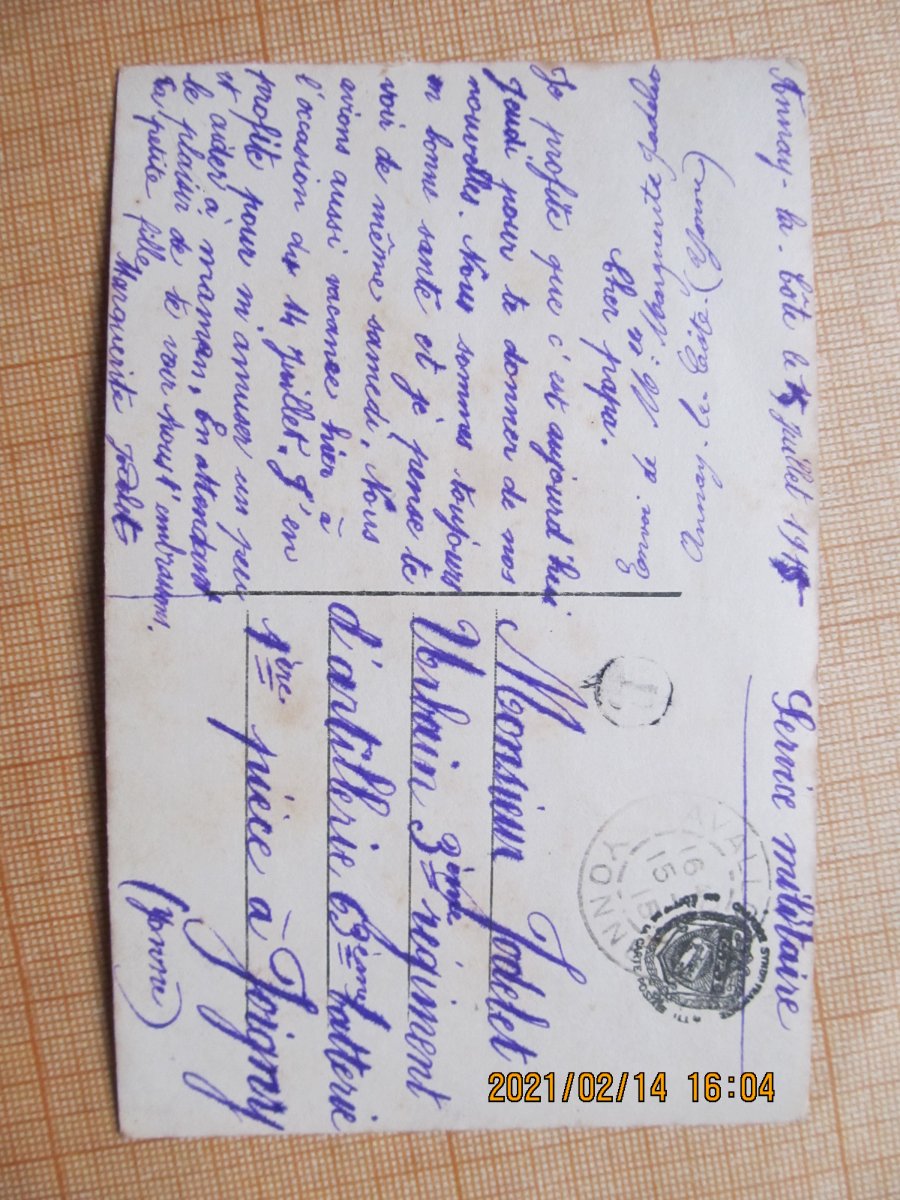 Annay-la-Côte le 15 juillet 1915
Service militaire
Envoi de M<sup>lle</sup> Marguerite Jodelet
Annay-la-Côte (Yonne)
Cher papa.
Je profite que c'est aujourd'hui
Jeudi pour te donner de nos
nouvelles. Nous sommes toujours
en bonne santé et je pense te
voir de même samedi. Nous
avions aussi vacances hier à
l'occasion du 14 Juillet. J'en
profite pour m'amuser un peu
et aider à maman. En attendant
le plaisir de te voir nous t'embrassons.
Ta petite fille
Marguerite Jodelet
Monsieur Jodelet
Urbain 3ème régiment
d'artillerie 63ème batterie
1ère pièce à Joigny
(Yonne)
T
AVALLO
16
15
15
YONN
2021/02/14 16:04